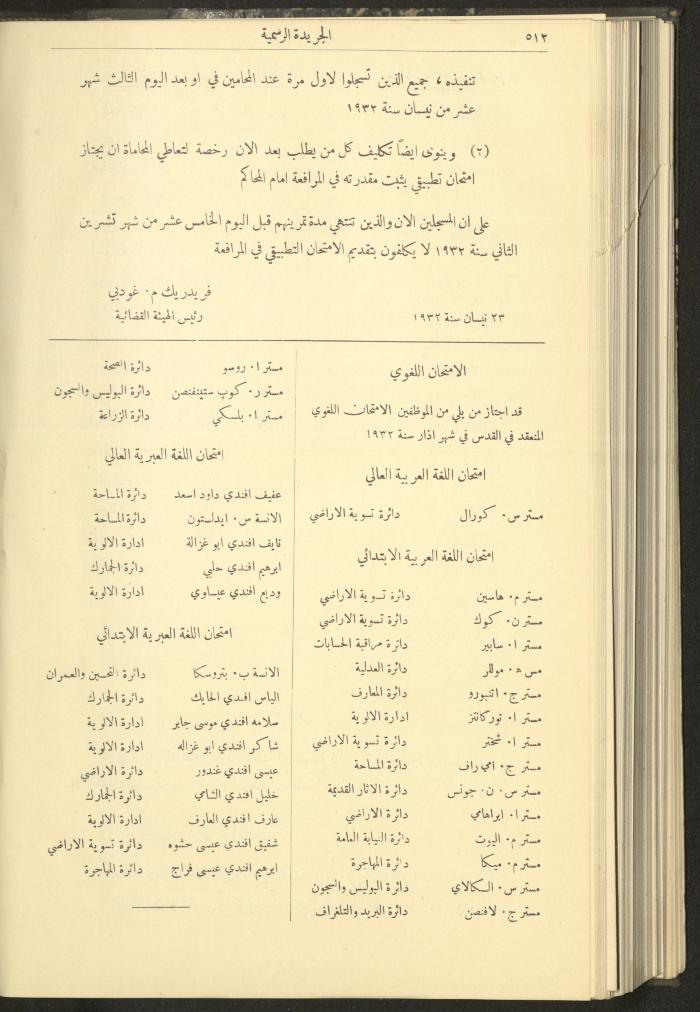 ٥١٢
الجريدة الرسمية
تنفيذه ، جميع الذين تسجلوا لاول مرة عند المحامين في او بعد اليوم الثالث شهر
عشر من نيسان سنة ١٩٣٢
(٢) وينوى ايضاً تكليف كل من يطلب بعد الان رخصة لتعاطي المحاماة ان يجتاز
امتحان تطبيقي يثبت مقدرته في المرافعة امام المحاكم
على ان المسجلين الان والذين تنتهي مدة تمرينهم قبل اليوم الخامس عشر من شهر تشرين
الثاني سنة ١٩٣٢ لا يكلفون بتقديم الامتحان التطبيقي في المرافعة
فريدريك م. غودبي
٢٣ نيسان سنة ١٩٣٢ رئيس الهيئة القضائية
الامتحان اللغوي
قد اجتاز من يلي من الموظفين الامتحان اللغوي
المنعقد في القدس في شهر اذار سنة ١٩٣٢
امتحان اللغة العربية العالي
مستر س. كورال دائرة تسوية الاراضي
امتحان اللغة العربية الابتدائي
مستر م. هاسين دائرة تسوية الاراضي
مستر ن. كوك دائرة تسوية الاراضي
مستر ا. سابير دائرة مراقبة الحسابات
مس ه. موللر دائرة العدلية
مستر ج. اتنبورو دائرة المعارف
مستر ا. توركانتز ادارة الالوية
مستر ا. شختر دائرة تسوية الاراضي
مستر ج. امي راف دائرة المساحة
مستر س. ن. جونس دائرة الاثار القديمة
مستر ا. ابراهامي دائرة الاراضي
مستر م. اليوت دائرة النيابة العامة
مستر م. ميكا دائرة المهاجرة
مستر س. السكالاي دائرة البوليس والسجون
مستر ج. لافنصن دائرة البريد والتلغراف
مستر ا. روسو دائرة الصحة
مستر ر. كوب ستيفنصن دائرة البوليس والسجون
مستر ا. بلسكي دائرة الزراعة
امتحان اللغة العبرية العالي
عفيف افندي داود اسعد دائرة المساحة
الانسة س. ايدلستون دائرة المساحة
فايف افندي ابو غزالة ادارة الالوية
ابرهيم افندي حلبي دائرة الجمارك
وديع افندي عيساوي ادارة الالوية
امتحان اللغة العبرية الابتدائي
الانسة ب. بتروسكا دائرة التحسين والعمران
الياس افندي الحايك دائرة الجمارك
سلامه افندي موسى جابر ادارة الالوية
شاكر افندي ابو غزاله ادارة الالوية
عيسى افندي غندور دائرة الاراضي
خليل افندي الشامي دائرة الجمارك
عارف افندي العارف ادارة الالوية
شفيق افندي عيسى حشوه دائرة تسوية الاراضي
ابرهيم افندي عيسى فراج دائرة المهاجرة